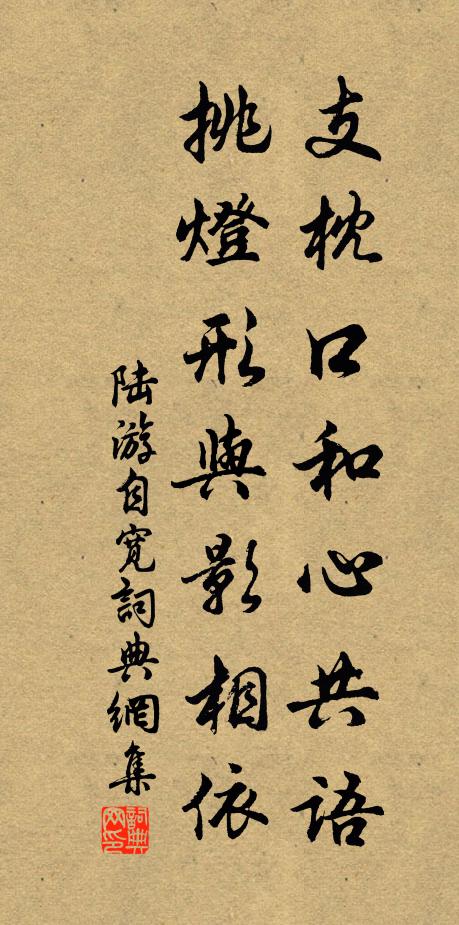 支枕口和心共語
挑燈形與影相依
陸游自寬詞典網集
詞典網印